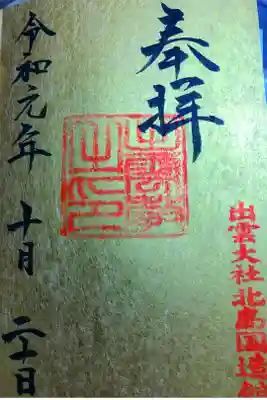 奉拝
出雲教
之印
出雲大社北島国造館
令和元年 十月 二十日